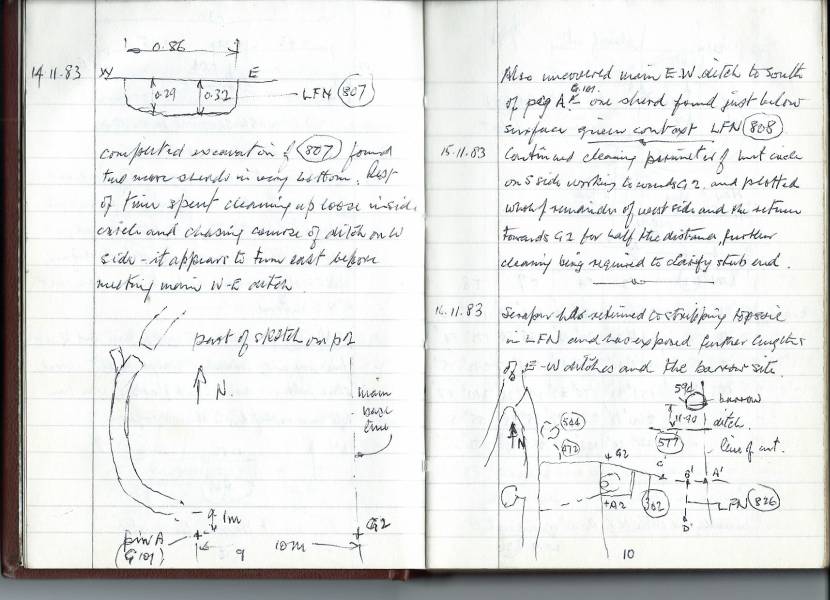 0.86
14.11.83
W E
0.29 0.32 LFN 807
completed excavation of 807 found
two more sherds in using bottom. Rest
of time spent cleaning up loose inside
circle and chasing course of ditch on W
side - it appears to turn east before
meeting main W-E ditch.
part of sketch on p2
N.
main
base
line
1m
pin A
(G101)
10m
G2
9
Also uncovered main E.W. ditch to south
G101.
of peg A. one sherd found just below
surface given context LFN 808
15.11.83
Continued cleaning perimeter of hut circle
on S side working towards G2. and plotted
whole of remainder of west side and the return
towards G2 for half the distance, further
cleaning being required to clarify stub end.
16.11.83
Scraper has returned to stripping topsoil
in LFN and has exposed further lengths
of E-W ditches and the barrow site.
594
barrow
11.90
ditch.
544
577
line of cut.
N
472
+G2
C'
B'
A'
+A2
302
LFN 826
D'
10